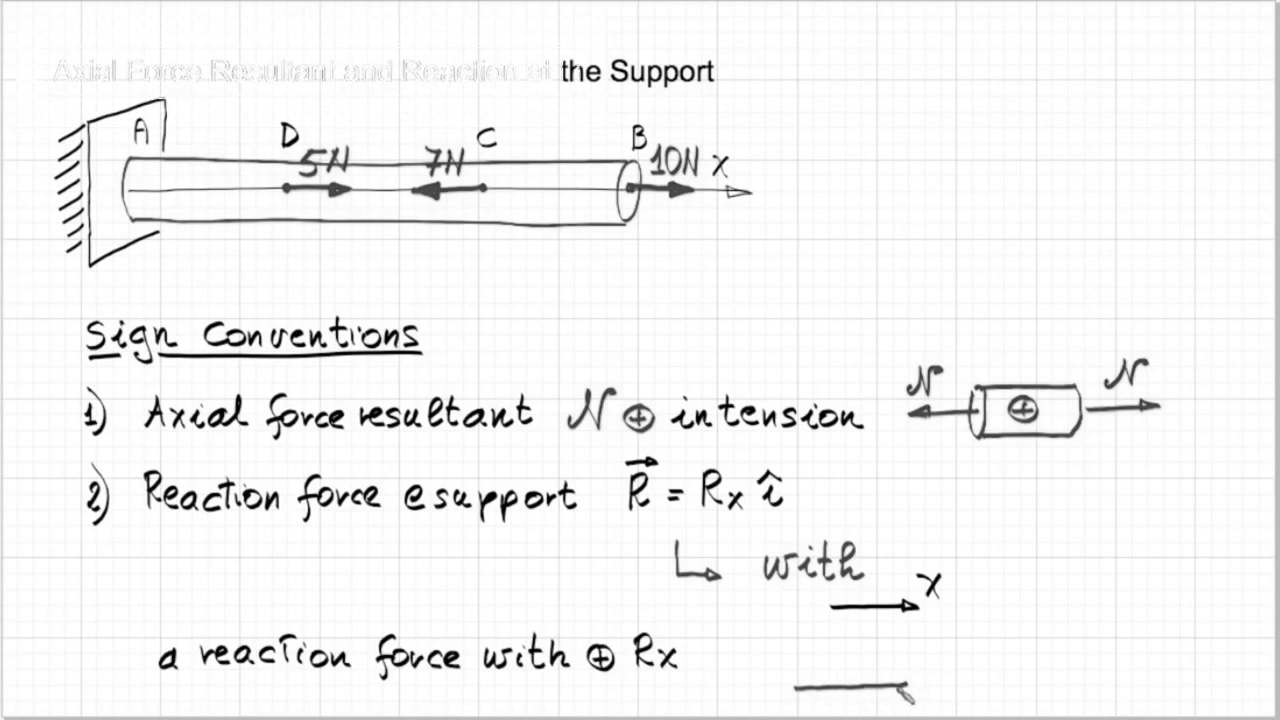 Axial Force Resultant and Reaction at the Support
A D C B
5N 7N 10N x
Sign Conventions
1) Axial force resultant N ⊕ in tension
N ⊕ N
2) Reaction force @ support R⃗ = Rx î
↳ with
x
a reaction force with ⊕ Rx